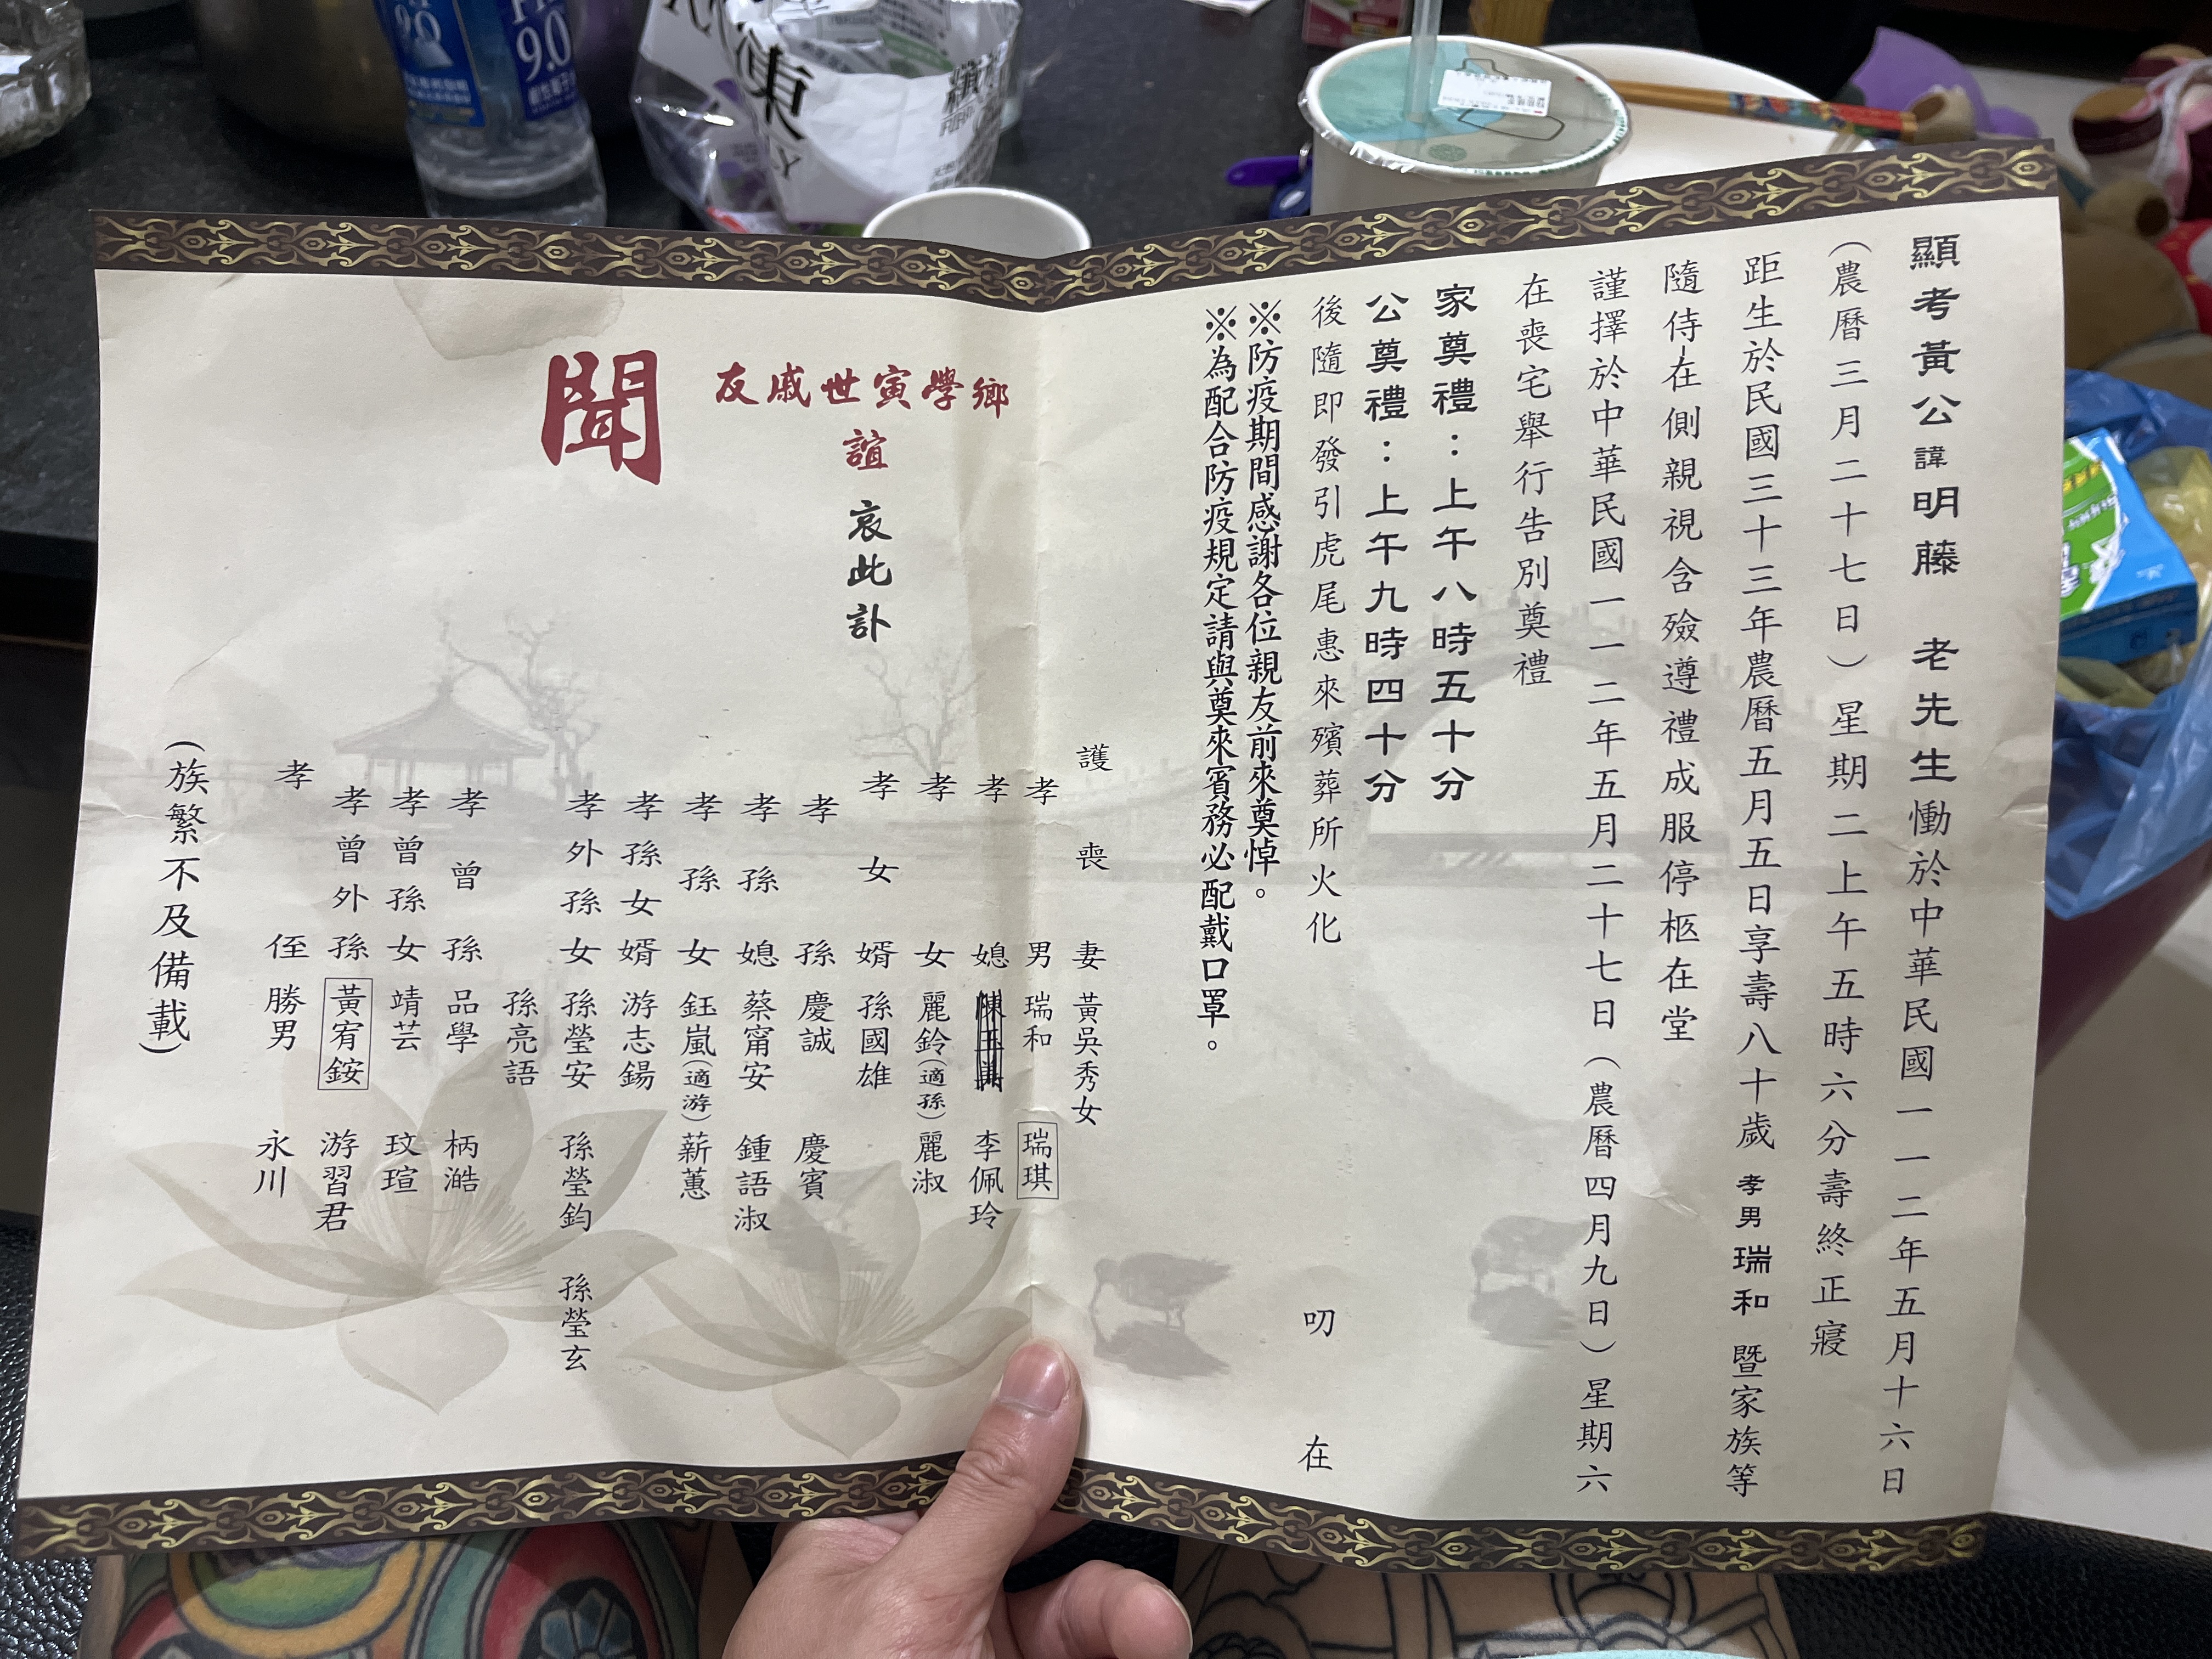 顯考黃公諱明藤 老先生慟於中華民國一一二年五月十六日
（農曆三月二十七日）星期二上午五時六分壽終正寢
距生於民國三十三年農曆五月五日享壽八十歲 孝男瑞和 暨家族等
隨侍在側親視含殮遵禮成服停柩在堂
謹擇於中華民國一一二年五月二十七日（農曆四月九日）星期六
在喪宅舉行告別奠禮
家奠禮：上午八時五十分
公奠禮：上午九時四十分
後隨即發引虎尾惠來殯葬所火化 叨 在
※防疫期間感謝各位親友前來奠悼。
※為配合防疫規定請與奠來賓務必配戴口罩。
鄉學寅世戚友
誼 哀此訃
聞
護喪妻 黃吳秀女
孝男 瑞和 瑞琪
孝媳 李佩玲
孝女 麗鈴（適孫） 麗淑
孝女婿 孫國雄
孝孫 慶誠 慶賓
孝孫媳 蔡甯安 鍾語淑
孝孫女 鈺嵐（適游） 薪蕙
孝孫女婿 游志錫
孝外孫女 孫瑩安 孫瑩鈞 孫瑩玄
孫亮語
孝曾孫 品學 柄澔
孝曾孫女 靖芸 玟瑄
孝曾外孫 黃宥銨 游習君
孝侄 勝男 永川
（族繁不及備載）
9.0
9.0